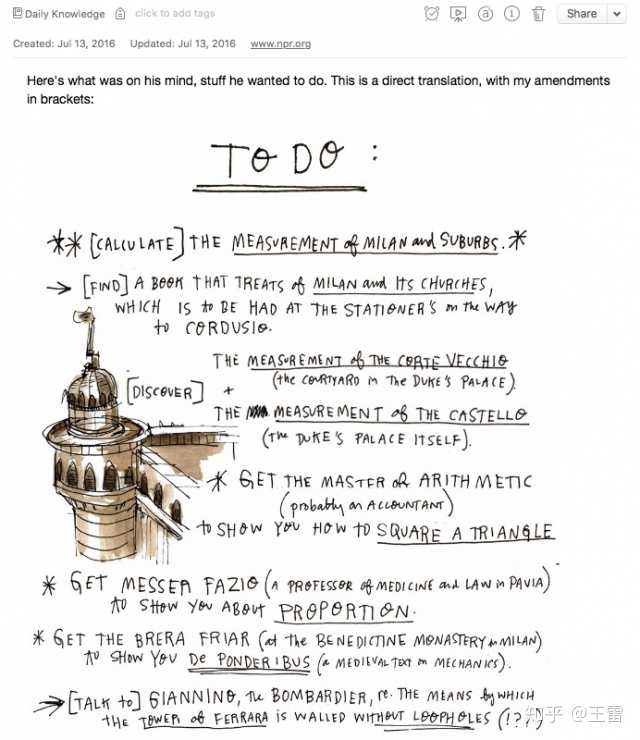 Daily Knowledge click to add tags Share
Created: Jul 13, 2016 Updated: Jul 13, 2016 www.npr.org
Here's what was on his mind, stuff he wanted to do. This is a direct translation, with my amendments
in brackets:
TO DO :
** [CALCULATE] THE MEASUREMENT of MILAN and SUBURBS. *
→ [FIND] A BOOK THAT TREATS of MILAN and ITS CHURCHES,
WHICH IS to BE HAD AT THE STATIONER'S on the WAY
to CORDUSIO.
THE MEASUREMENT of THE CORTE VECCHIO
(the COURTYARD in THE DUKE'S PALACE).
[DISCOVER] +
THE MEASUREMENT of THE CASTELLO
(THE DUKE'S PALACE ITSELF).
* GET THE MASTER of ARITHMETIC
(probably an ACCOUNTANT)
to SHOW YOU HOW TO SQUARE A TRIANGLE
* GET MESSER FAZIO (A PROFESSOR of MEDICINE and LAW in PAVIA)
to SHOW YOU ABOUT PROPORTION.
* GET THE BRERA FRIAR (at the BENEDICTINE MONASTERY in MILAN)
to SHOW YOU De PONDERIBUS (a MEDIEVAL TEXT on MECHANICS).
→ [TALK to] GIANNINO, the BOMBARDIER, re. THE MEANS by WHICH
the TOWER of FERRARA is WALLED WITHOUT LOOPHOLES (!?!?)
知乎 @王雷